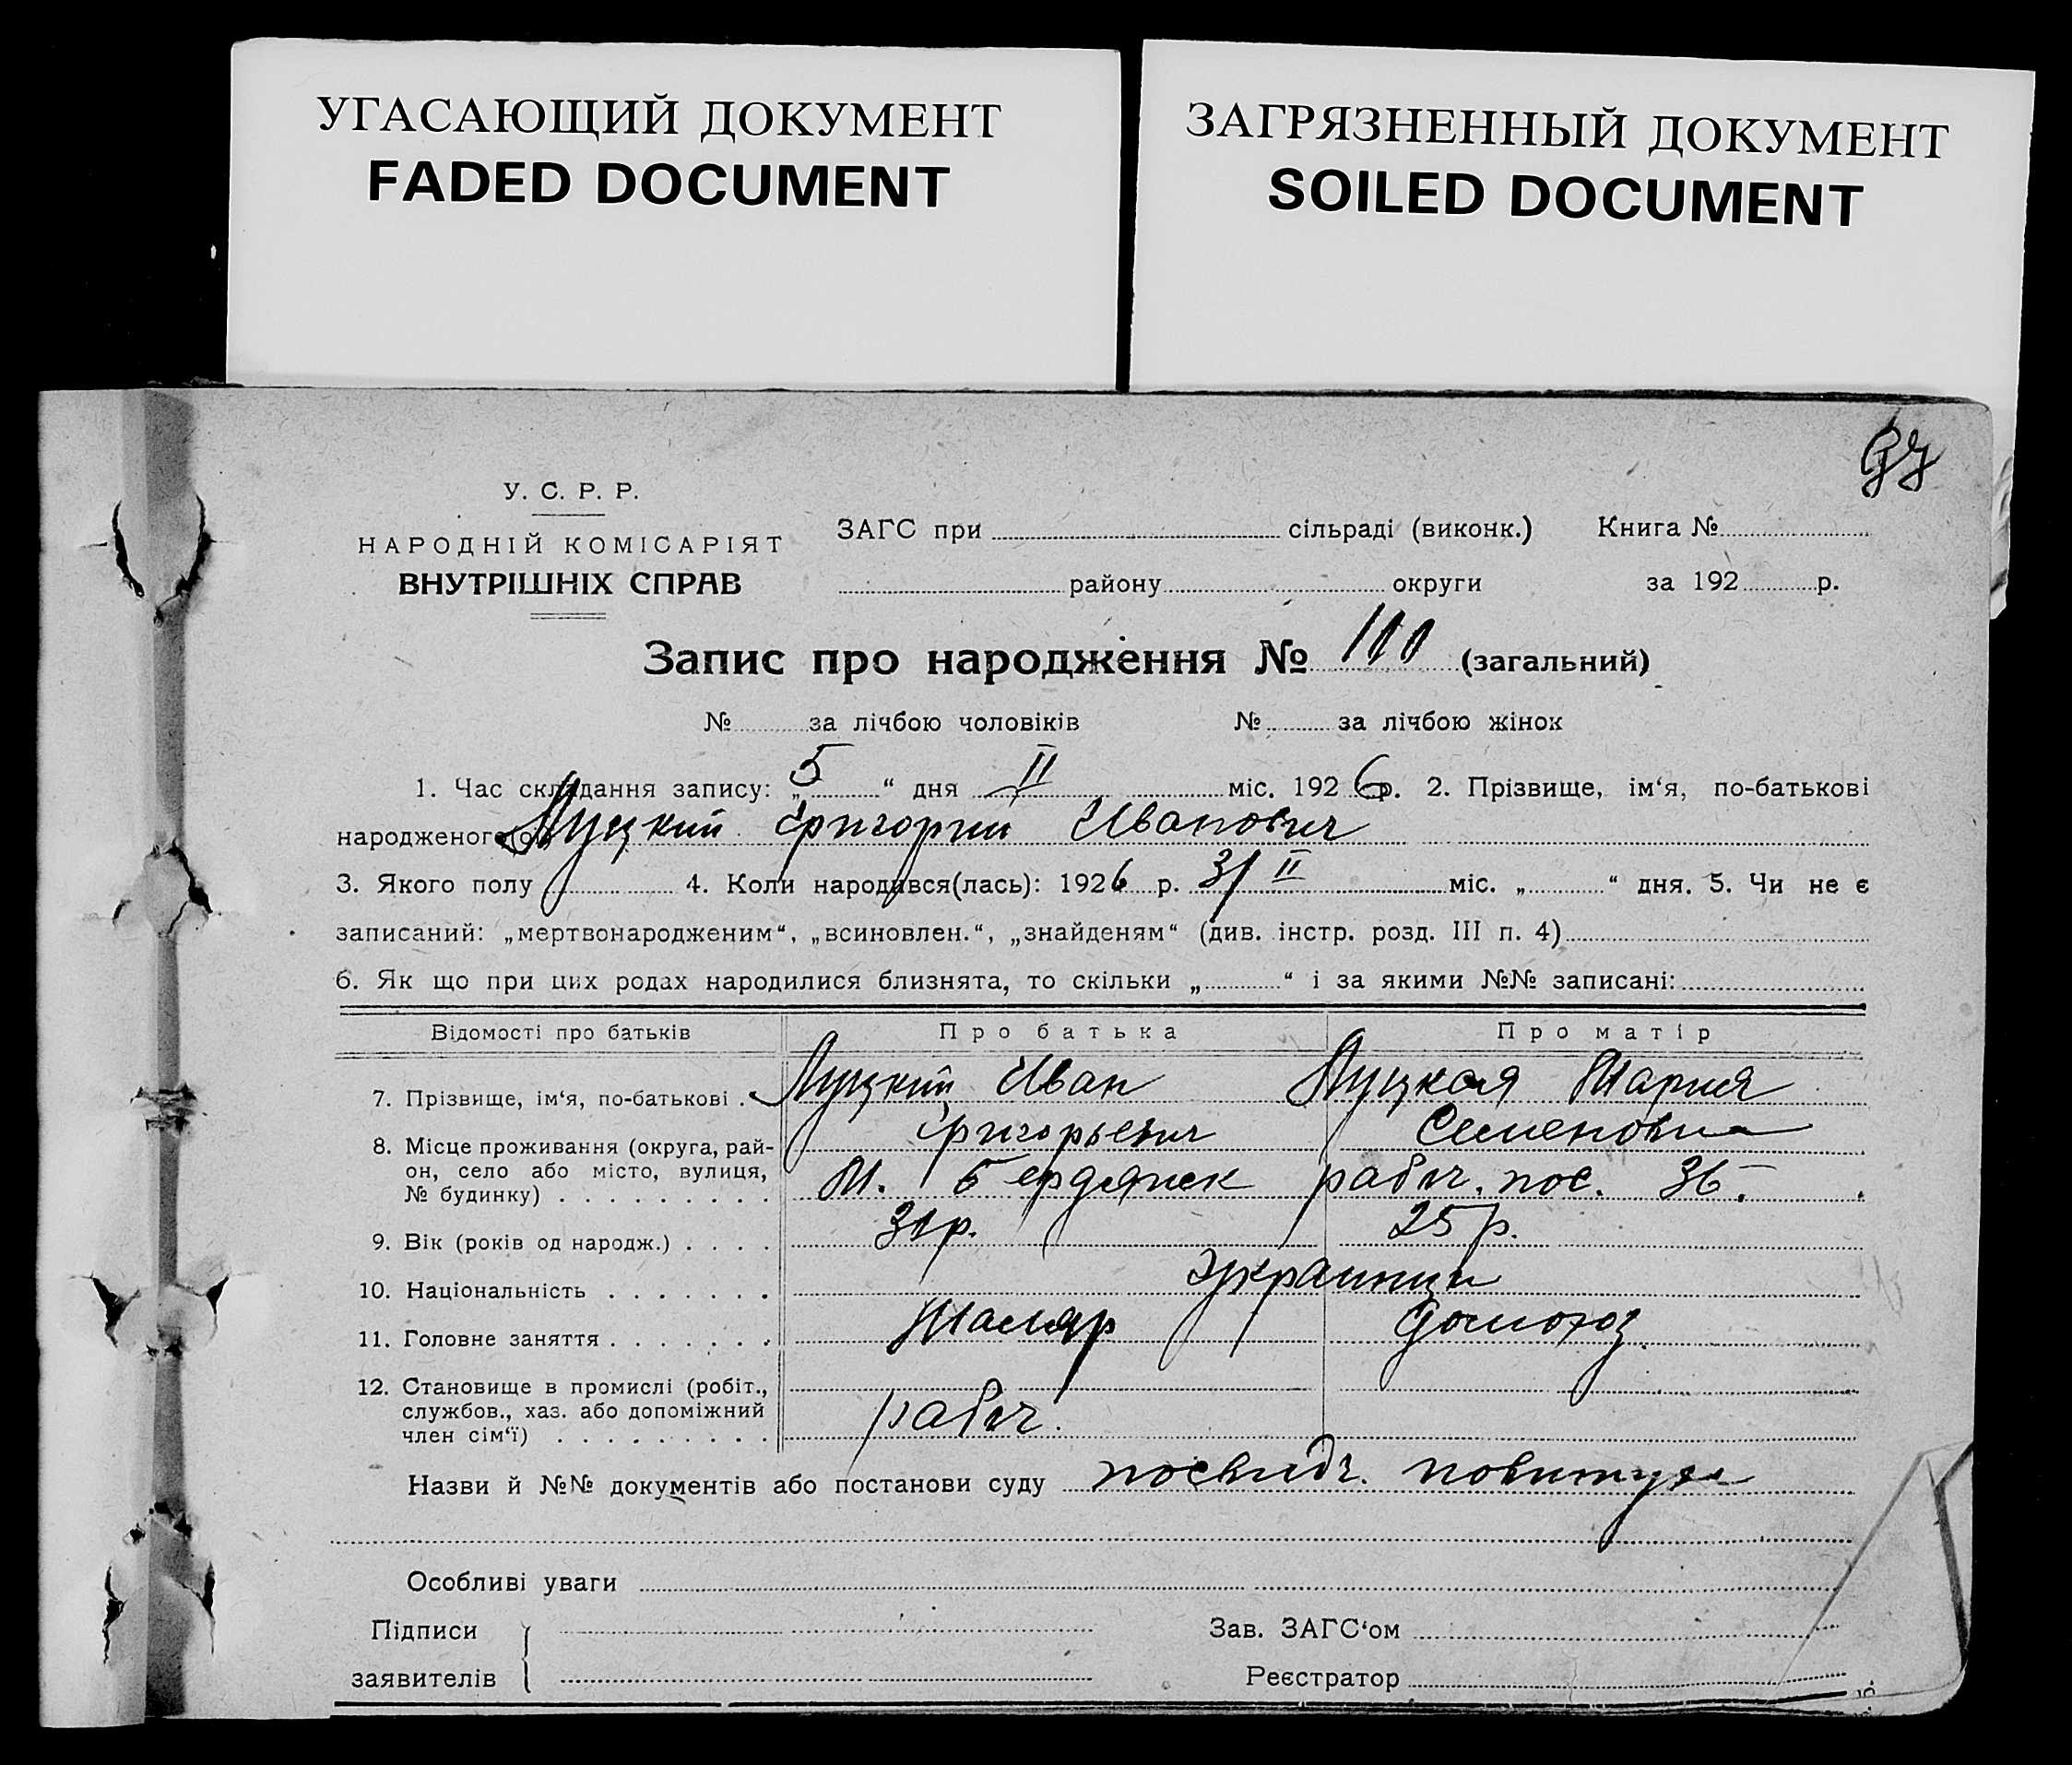 УГАСАЮЩИЙ ДОКУМЕНТ
FADED DOCUMENT
ЗАГРЯЗНЕННЫЙ ДОКУМЕНТ
SOILED DOCUMENT
У. С. Р. Р.
НАРОДНІЙ КОМІСАРІЯТ
ВНУТРІШНІХ СПРАВ
ЗАГС при сільраді (виконк.) Книга №
району округи за 192 р.
Запис про народження № 100 (загальний)
№ за лічбою чоловіків № за лічбою жінок
1. Час складання запису: „5“ дня II міс. 1926 р. 2. Прізвище, ім‘я, по-батькові
народженого Луцкий Григорий Иванович
3. Якого полу 4. Коли народився(лась): 1926 р. 31 II міс. „ “ дня. 5. Чи не є
записаний: „мертвонародженим“, „всиновлен.“, „знайденям“ (див. інстр. розд. III п. 4)
6. Як що при цих родах народилися близнята, то скільки „ “ і за якими №№ записані:
Відомості про батьків Про батька Про матір
7. Прізвище, ім‘я, по-батькові . Луцкий Иван Луцкая Мария
Григорьевич Семеновна
8. Місце проживання (округа, рай-
он, село або місто, вулиця,
№ будинку) . . . . . . . . . М. Бердянск рабоч. пос. 36.
9. Вік (років од народж.) . . . . 31р. 25 р.
10. Національність . . . . . . . Украинцы
11. Головне заняття . . . . . . . Маляр домохоз.
12. Становище в промислі (робіт.,
службов., хаз. або допоміжний
член сім‘ї) . . . . . . . . . рабоч.
Назви й №№ документів або постанови суду посвидч. повитухи
Особливі уваги
Підписи
заявителів
Зав. ЗАГС‘ом
Реєстратор